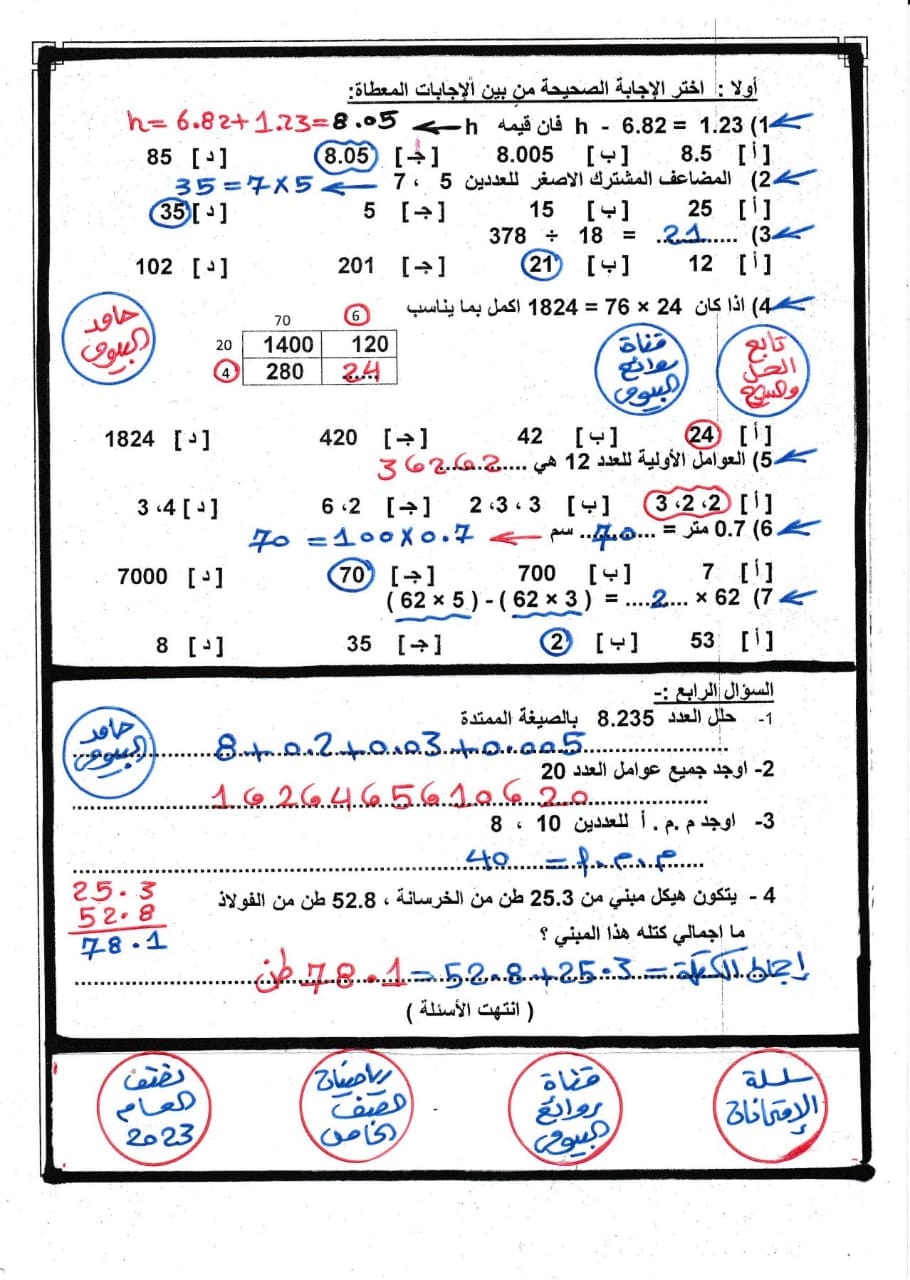 أولا : اختر الإجابة الصحيحة من بين ألإجابات المعطاة:
1) h - 6.82 = 1.23 فان قيمه h ← h = 6.82 + 1.23 = 8.05
[أ] 8.5 [ب] 8.005 [جـ] 8.05 [د] 85
2) المضاعف المشترك الاصغر للعددين 5 ، 7 ← 35 = 7 × 5
[أ] 25 [ب] 15 [جـ] 5 [د] 35
3) 378 ÷ 18 = ...21...
[أ] 12 [ب] 21 [جـ] 201 [د] 102
4) اذا كان 24 × 76 = 1824 اكمل بما يناسب
70 6
20 1400 120
4 280 24
حامد البيومى
قناة روائع البيومى
تابع الحل وصحح
[أ] 24 [ب] 42 [جـ] 420 [د] 1824
5) العوامل الأولية للعدد 12 هي ...2 ، 2 ، 3...
[أ] 2 ،2 ،3 [ب] 3 ، 3، 2 [جـ] 2، 6 [د] 4، 3
6) 0.7 متر = ...70... سم ← 70 = 100 × 0.7
[أ] 7 [ب] 700 [جـ] 70 [د] 7000
7) 62 × ....2.... = ( 62 × 3 ) - ( 62 × 5 )
[أ] 53 [ب] 2 [جـ] 35 [د] 8
السؤال الرابع :-
1- حلل العدد 8.235 بالصيغة الممتدة
8 + 0.2 + 0.03 + 0.005
حامد البيومى
2- اوجد جميع عوامل العدد 20
1 ، 2 ، 4 ، 5 ، 10 ، 20
3- اوجد م .م . أ للعددين 10 ، 8
م . م . أ = 40
4 - يتكون هيكل مبني من 25.3 طن من الخرسانة ، 52.8 طن من الفولاذ
25.3
52.8
78.1
ما اجمالي كتله هذا المبني ؟
إجمالى الكتلة = 25.3 + 52.8 = 78.1 طن
( انتهت الأسئلة )
سلسلة الإمتحانات
قناة روائع البيومى
رياضيات الصف الخامس
نصف العام 2023